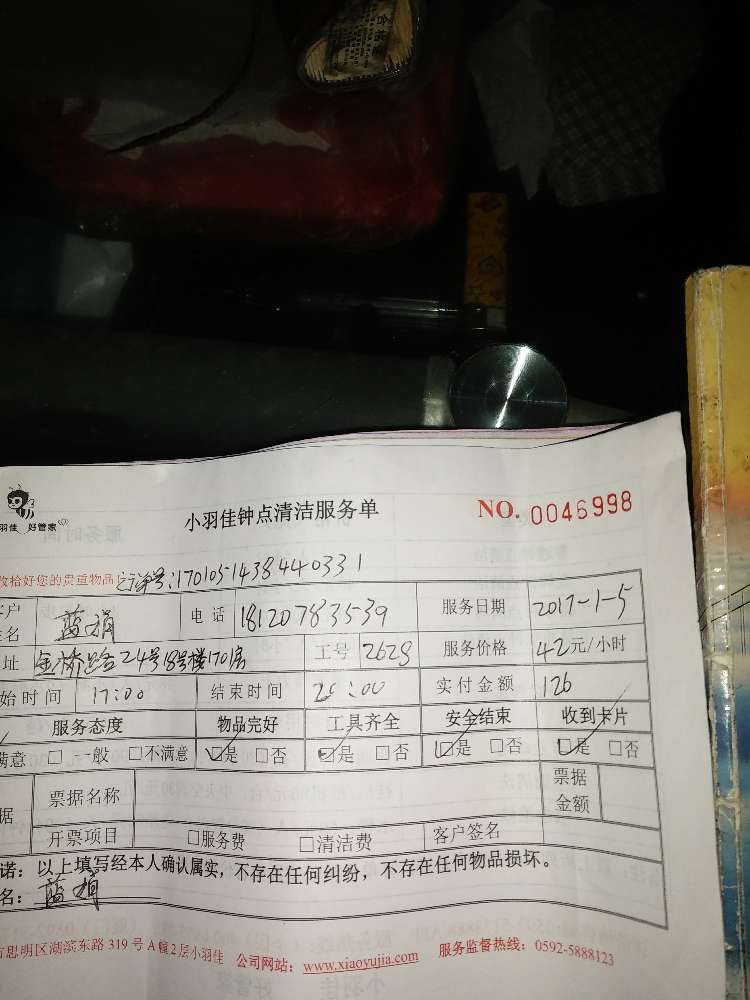 合格
小羽佳钟点清洁服务单
NO. 0046998
羽佳 好管家
收拾好您的贵重物品 订单号:170105143844033 1
客户姓名 蓝娟 电话 18120783539 服务日期 2017-1-5
址 金桥路24号18号楼170房 工号 2628 服务价格 42元/小时
始时间 17:00 结束时间 20:00 实付金额 126
服务态度 物品完好 工具齐全 安全结束 收到卡片
满意 □一般 □不满意 ☑是 □否 ☑是 □否 ☑是 □否 ☑是 □否
据 票据名称 票据金额
开票项目 □服务费 □清洁费 客户签名
诺：以上填写经本人确认属实，不存在任何纠纷，不存在任何物品损坏。
名：蓝娟
市思明区湖滨东路 319 号 A 幢 2 层小羽佳 公司网站：www.xiaoyujia.com 服务监督热线：0592-5888123